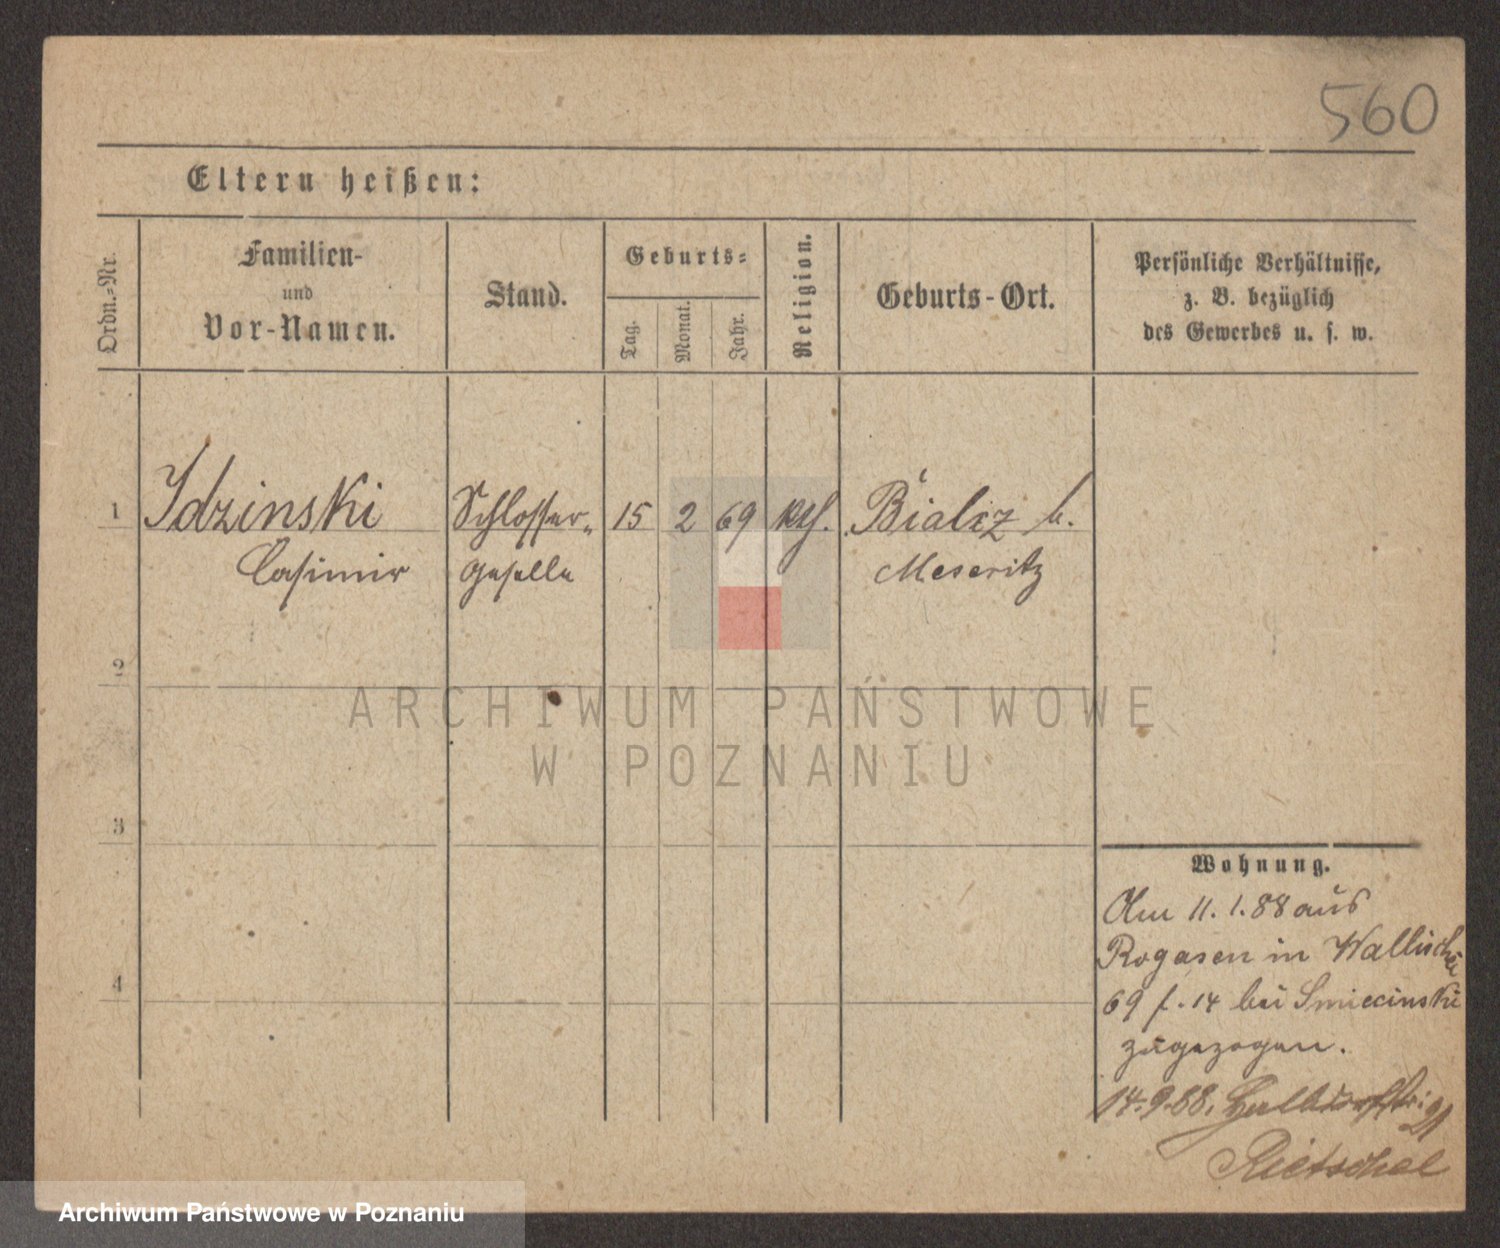 560
Eltern heißen:
Ordn.-Nr.
Familien-
und
Vor-Namen.
Stand.
Geburts-
Tag.
Monat.
Jahr.
Religion.
Geburts-Ort.
Persönliche Verhältnisse,
z. B. bezüglich
des Gewerbes u. s. w.
1 Idzinski Schlosser- 15 2 69 kth. b.
Casimir geselle Meseritz
2
ARCHIWUM PAŃSTWOWE
W POZNANIU
3
Wohnung.
Am 11.1.88 aus
Rogasen in Wallischei
69 f. 14 bei Smiecinski
zugezogen.
4
14.9.88. 21
Rietschel
Archiwum Państwowe w Poznaniu